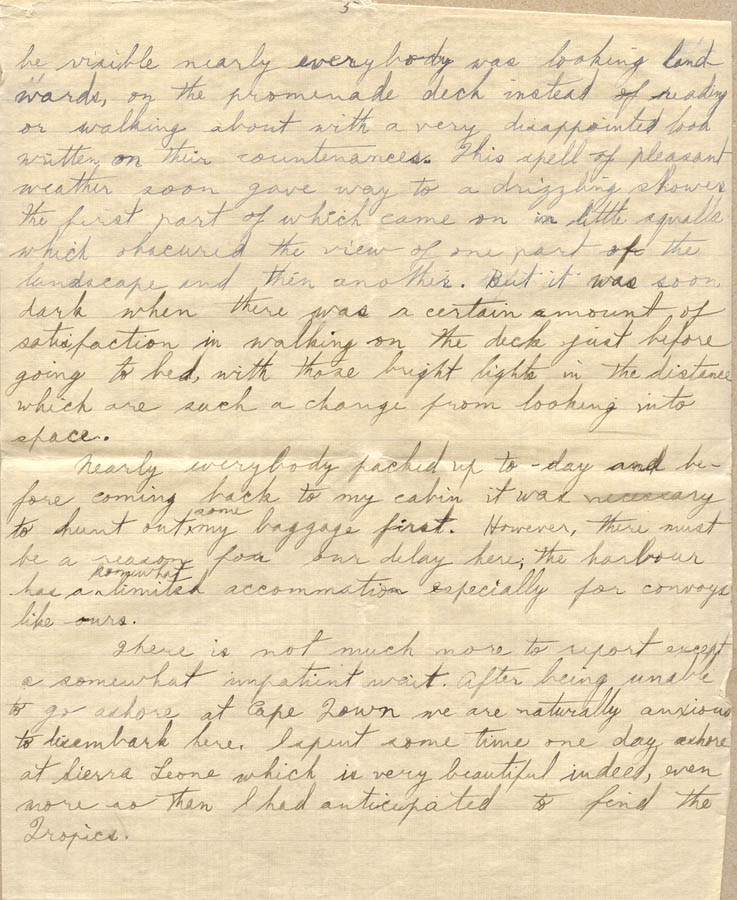 5
be visible nearly everybody was looking land-
wards, on the promenade deck instead of reading
or walking about with a very disappointed look
written on their countenances. This spell of pleasant
weather soon gave way to a drizzling shower
the first part of which came on in little squalls
which obscured the view of one part of the
landscape and then another. But it was soon
dark when there was a certain amount of
satisfaction in walking on the deck just before
going to bed, with those bright lights in the distance
which are such a change from looking into
space.
Nearly everybody packed up to-day and be-
fore coming back to my cabin it was necessary
some
to hunt out my baggage first. However, there must
be a reason for our delay here; the harbour
somewhat
has a limited accommation especially for convoys
like ours.
There is not much more to report except
a somewhat impatient wait. After being unable
to go ashore at Cape Town we are naturally anxious
to disembark here. I spent some time one day ashore
at Sierra Leone which is very beautiful indeed, even
more so than I had anticipated to find the
Tropics.